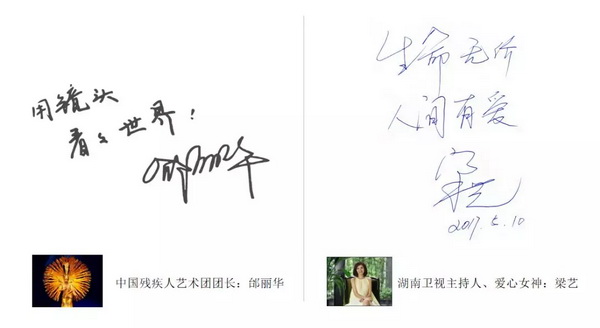 用镜头
看々世界！
邰丽华
中国残疾人艺术团团长：邰丽华
生命无价
人间有爱
梁艺
2017.5.10
湖南卫视主持人、爱心女神：梁艺